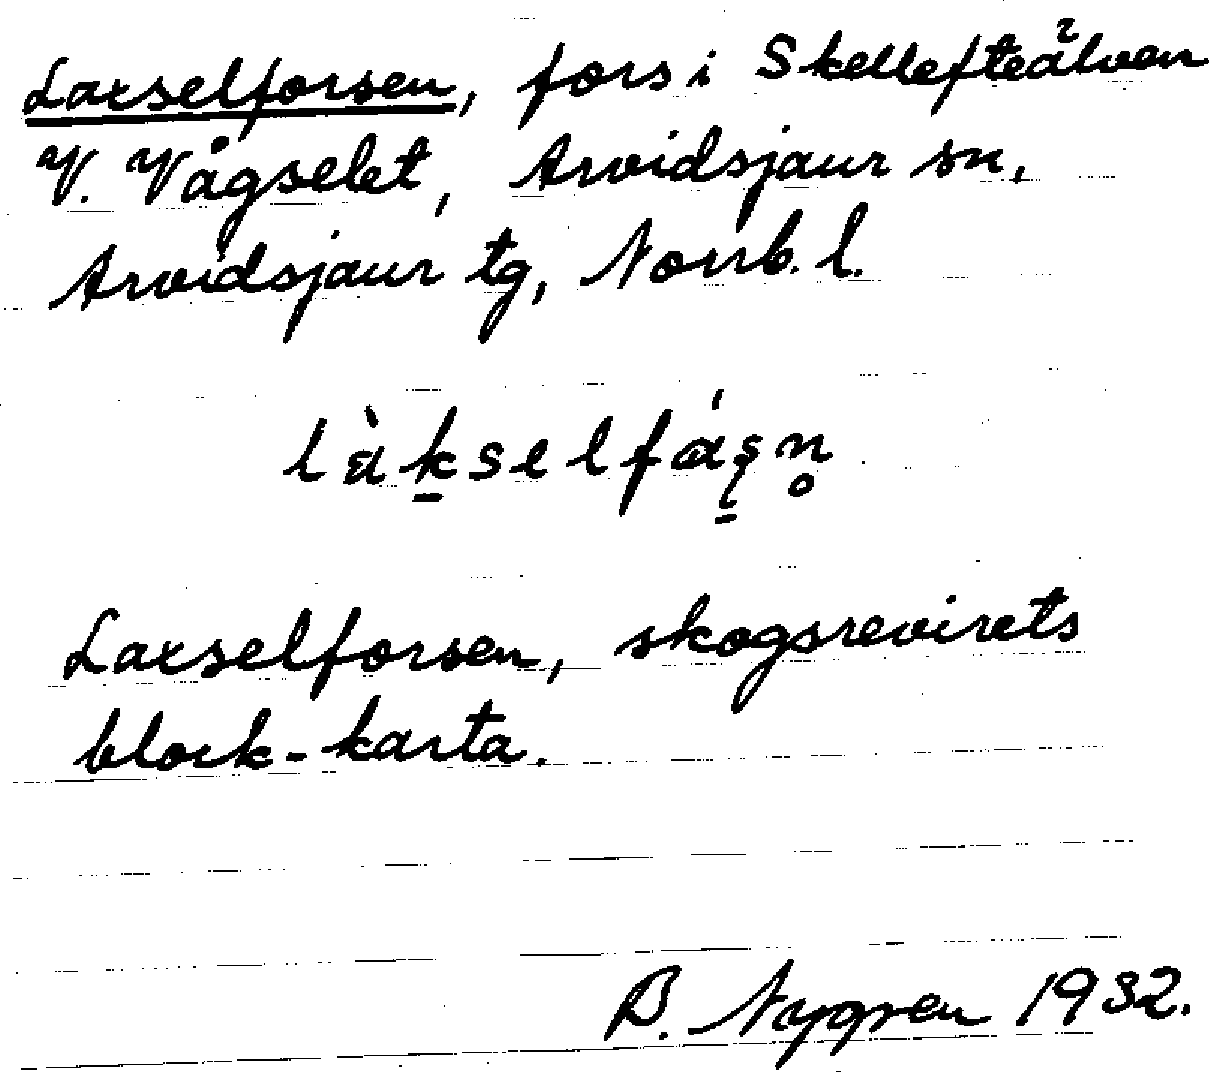 Laxselforsen, fors i Skellefteälven
V. Vågselet, Arvidsjaur sn,
Arvidsjaur tg, Norrb. l.
Laxselforsen, skogsrevirets
block-karta.
B. Nygren 1932.